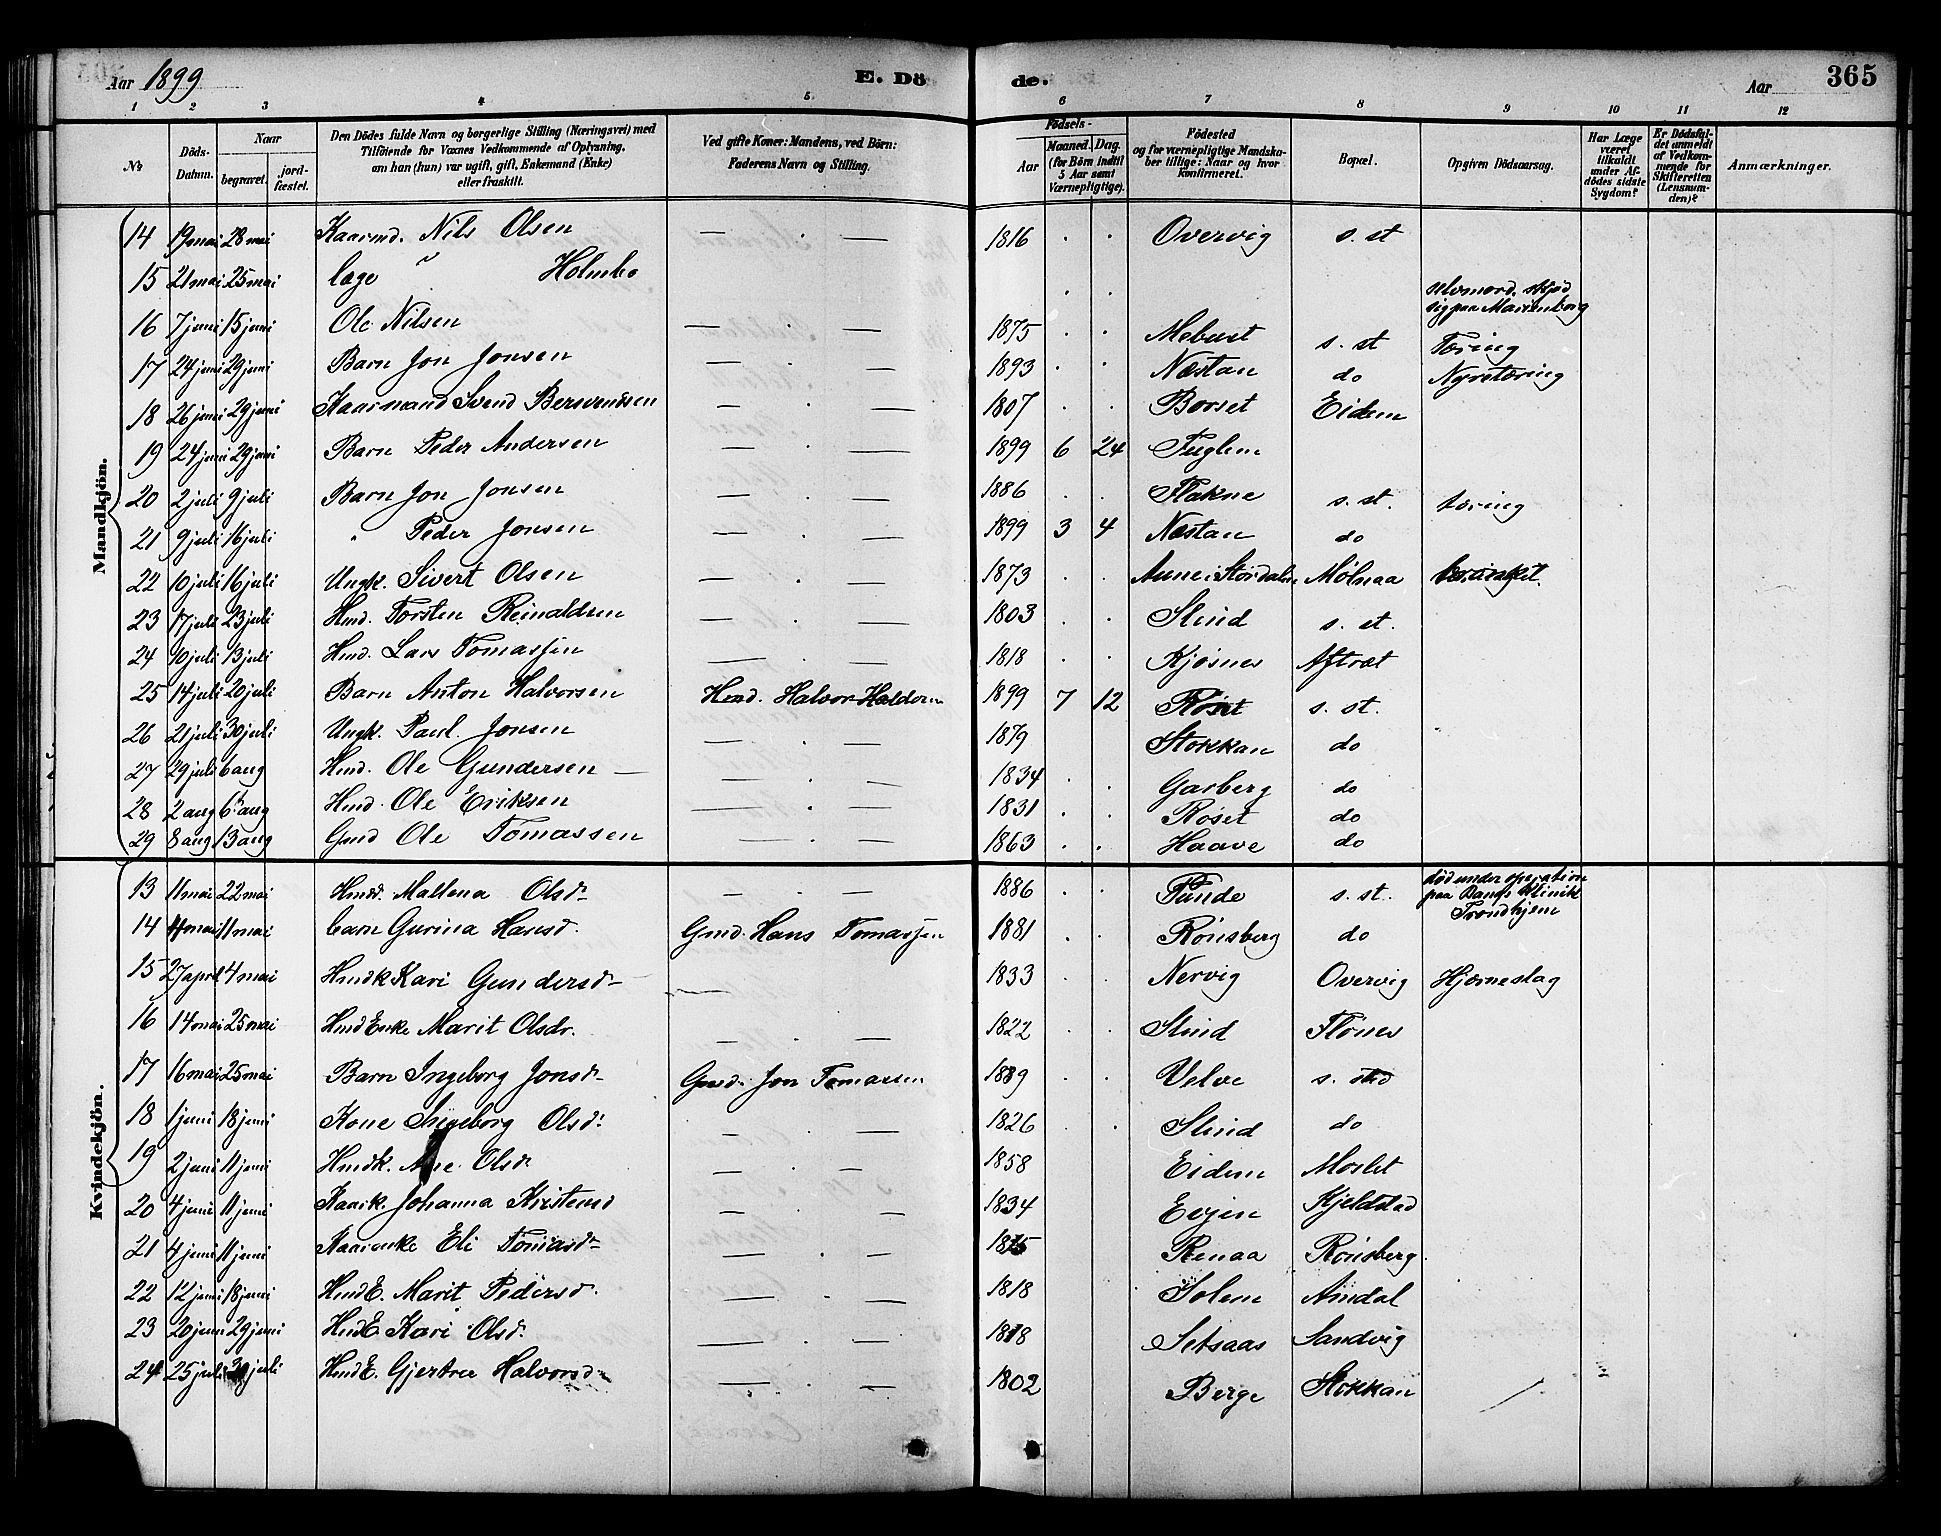 Aar 1899 E. Dö de. Aar 365
1 2 3 4 5 6 7 8 9 10 11 12
№ Döds-Datum. Naar begravet. jordfæstet. Den Dödes fulde Navn og borgerlige Stilling (Næringsvei) med Tilföiende for Voxnes Vedkommende af Oplysning, om han (hun) var ugift, gift, Enkemand (Enke) eller fraskilt. Ved gifte Koner: Mandens, ved Börn: Faderens Navn og Stilling. Födsels- Aar Maaned. Dag. (for Börn indtil 5 Aar samt Værnepligtige). Födested og for værnepligtige Mandskaber tillige: Naar og hvor konfirmeret. Bopæl. Opgiven Dödsaarsag. Har Læge været tilkaldt under Afdödes sidste Sygdom? Er Dödsfaldet anmeldt af Vedkommende for Skifteretten (Lensmanden)? Anmærkninger.
Mandkjön.
14 19 mai 28 mai Kaarmd. Nils Olsen — . — 1816 . . Overvig s. st
15 21 mai 25 mai læge " Holmbo . . selvmord, skjød sig paa Marienborg
16 7 juni 15 juni Ole Nilsen — . — 1875 . . Mebust s. st Tæring
17 24 juni 29 juni Barn Jon Jonsen — . — 1893 . . Næstan do Nyretæring
18 26 juni 29 juni Kaarmand Svend Bersvendsen — . — 1807 . . Borset Eidem
19 24 juni 29 juni Barn Peder Andersen — . — 1899 6 24 Fuglem
20 2 juli 9 juli Barn Jon Jonsen — . — 1886 . . Flakne s. st. tæring
21 9 juli 16 juli " Peder Jonsen — . — 1899 3 4 Næstan do
22 10 juli 16 juli Ungk. Sivert Olsen — . — 1873 . . Aune i Størdalen Mølnaa
23 17 juli 23 juli Hmd. Torsten Reinaldsen — . — 1803 . . Slind s. st.
24 10 juli 13 juli Hmd. Lars Tomassen — . — 1818 . . Kjøsnes Aftræt
25 14 juli 20 juli Barn Anton Halvorsen Hmd. Halvor Haldorsen 1899 7 12 Røset s. st.
26 21 juli 30 juli Ungk. Paul Jonsen — . — 1879 . Stokkan do
27 29 juli 6 aug Hmd. Ole Gundersen — — . — 1834 . Garberg do
28 2 aug 6 aug Hmd. Ole Eriksen — . — 1831 . . Røset do
29 8 aug 13 aug Gmd Ole Tomassen — . — 1863 . . Haave do
Kvindekjön.
13 11 mai 22 mai Hmdr. Mallena Olsdr — . — 1886 . . Tunde s. st. død under operation paa Bangs Klinik Trondhjem
14 4 mai 11 mai barn Gurina Hansd. Gmd. Hans Tomassen 1881 . . Rønsberg do
15 27 april 4 mai Hmdk Kari Gundersdr — 1833 . . Nervig Overvig Hjerneslag
16 14 mai 25 mai Hmd Enke Marit Olsdr. — . — 1822 . . Slind Flønes
17 16 mai 25 mai Barn Ingeborg Jonsdr Gmd. Jon Tomassen 1889 . . Velve s. sted
18 1 juni 18 juni Kone Ingeborg Olsdr — . — 1826 . Slind do
19 2 juni 11 juni Hmdk. Ane Olsdr — . — 1858 Eidem Moslet
20 4 juni 11 juni Kaark. Johanna Kirstensd — . — 1834 Evjen Kjeldstad
21 4 juni 11 juni Kaarenke Eli Tomasdr — . — 1815 Renaa Rønsberg
22 12 juni 18 juni HmdE. Marit Pedersd. — . — 1818 Solem Amdal
23 20 juni 29 juni HmdE. Kari Olsd. — . — 1818 Setsaas Sandvig
24 25 juli 30 juli HmdE. Gjertru Halvorsdr — . — 1802 Berge Stokkan